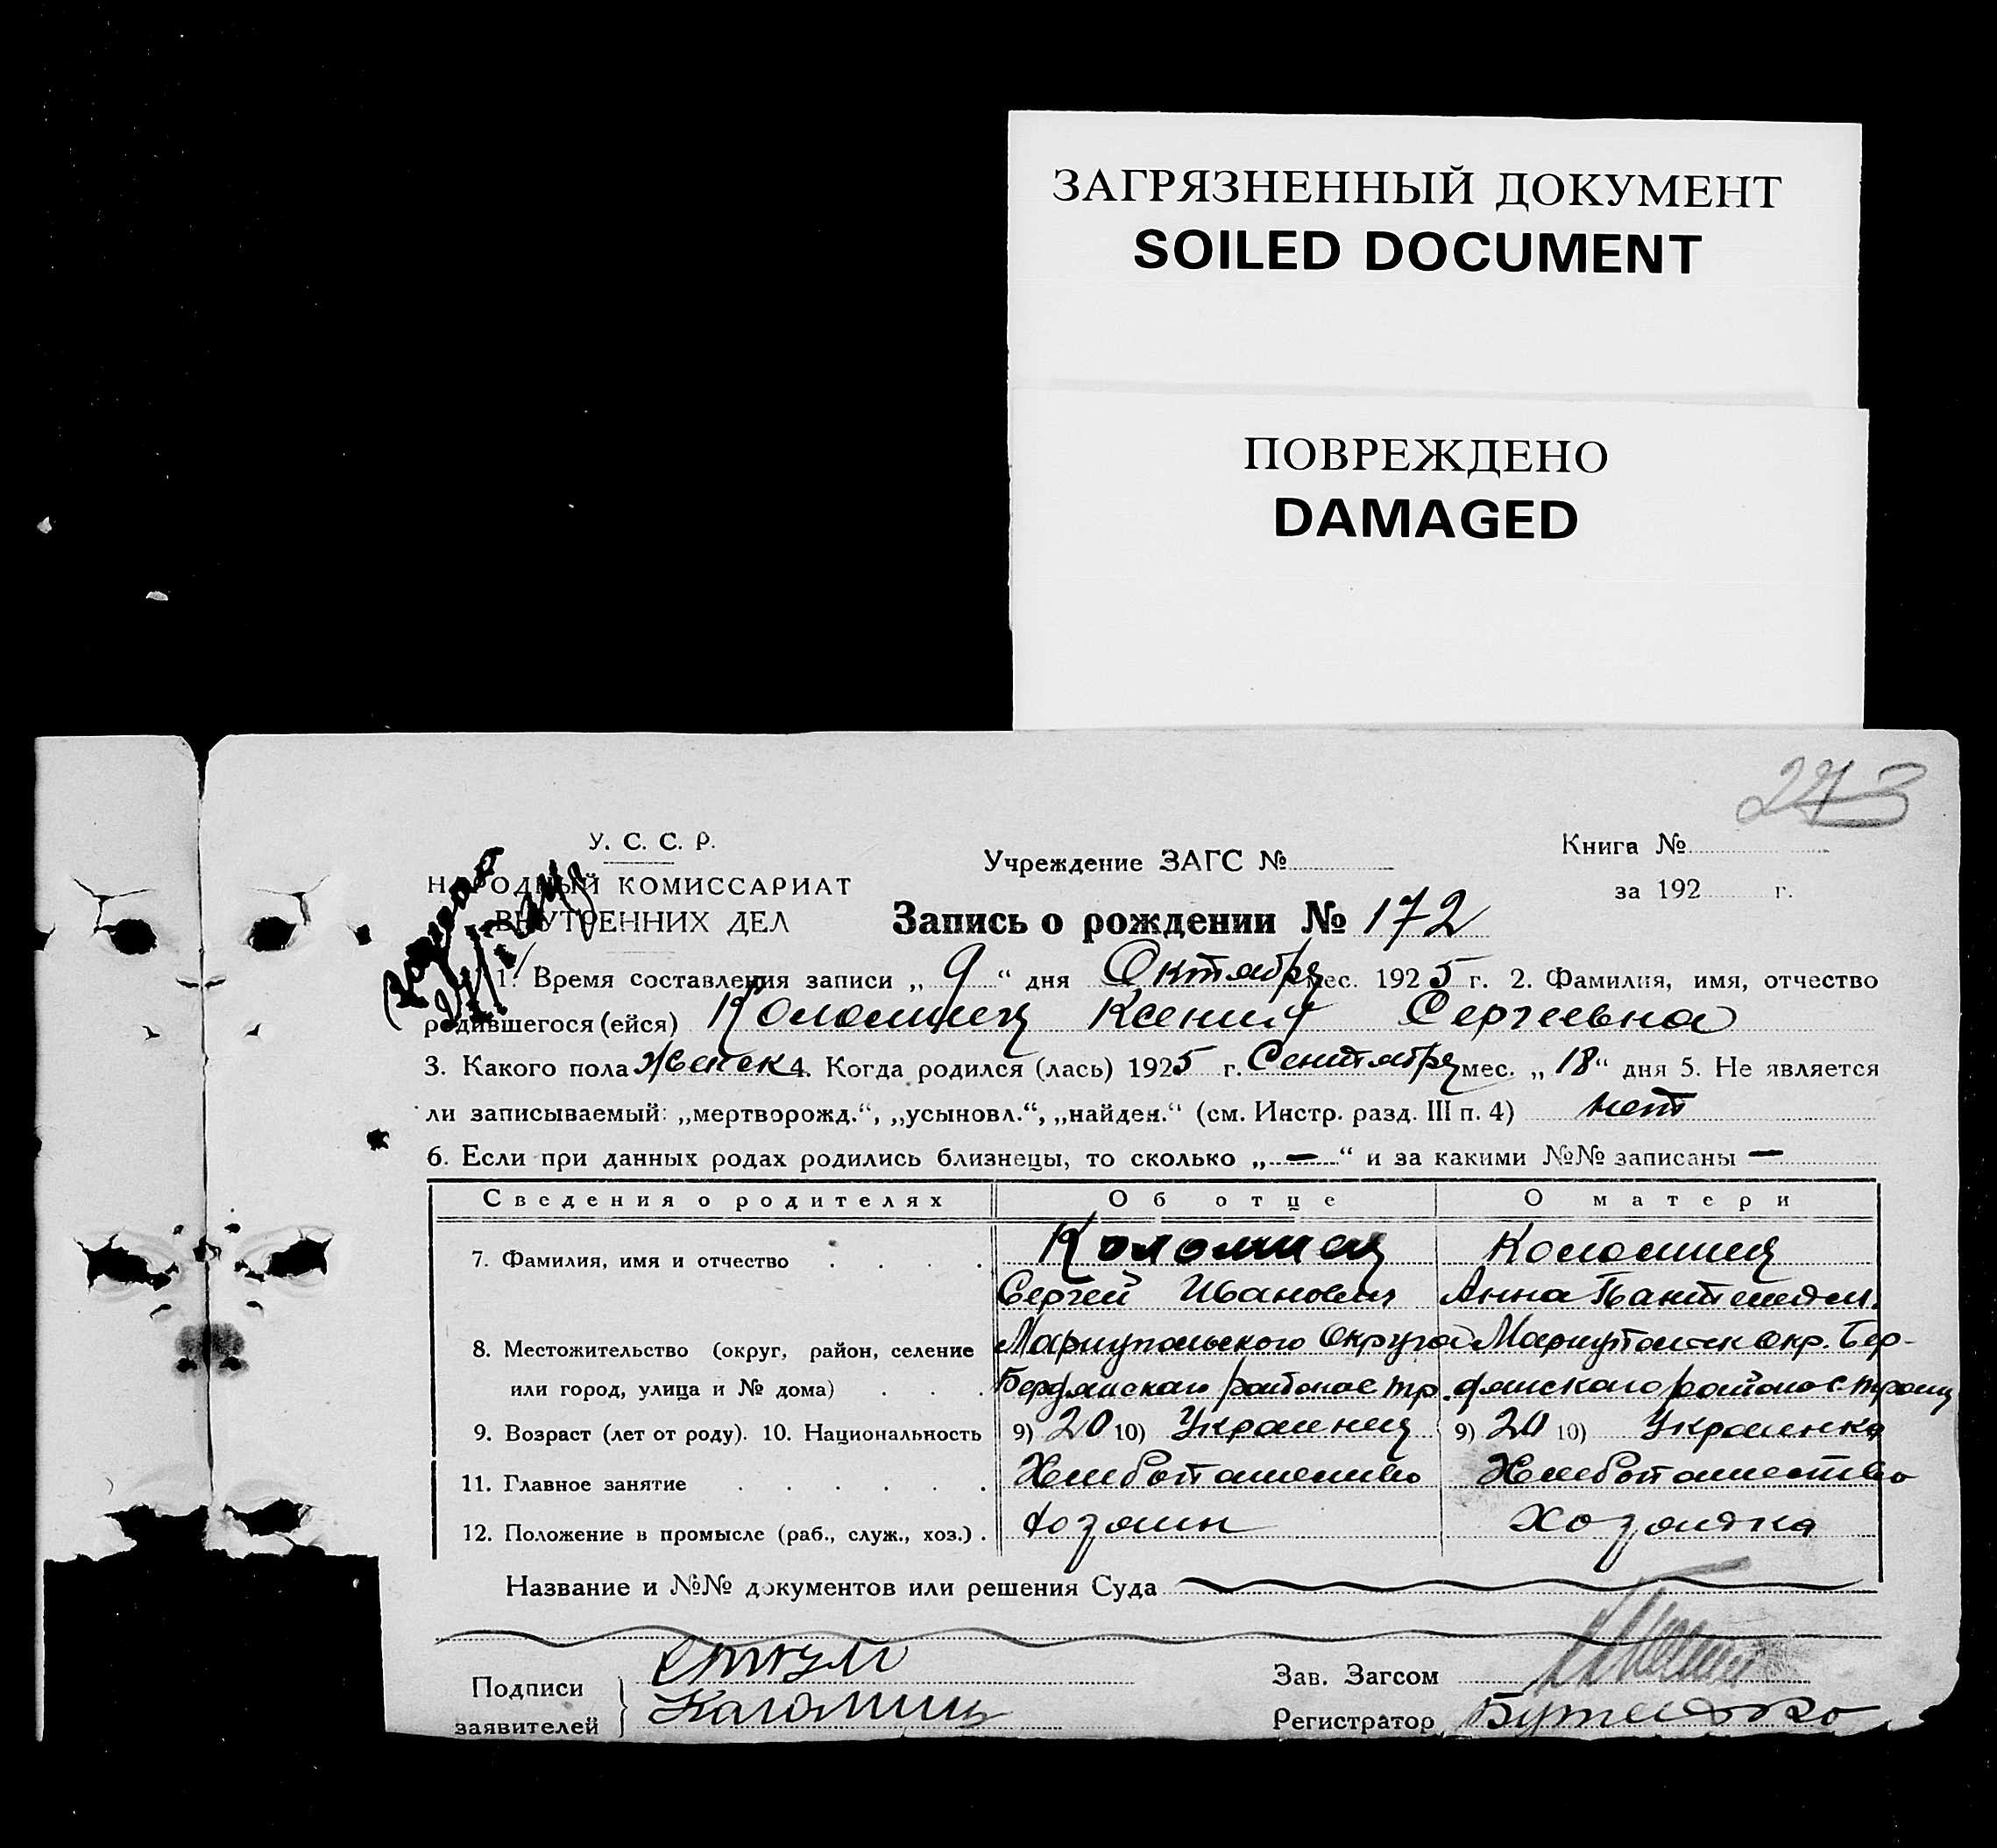 ЗАГРЯЗНЕННЫЙ ДОКУМЕНТ
SOILED DOCUMENT
ПОВРЕЖДЕНО
DAMAGED
273
У. С. С. Р.
НАРОДНЫЙ КОМИССАРИАТ
ВНУТРЕННИХ ДЕЛ
Учреждение ЗАГС №
Книга №
за 192 г.
Запись о рождении № 172
1. Время составления записи „ 9 “ дня Октября мес. 1925 г. 2. Фамилия, имя, отчество
родившегося (ейся) Коломиец Ксения Сергеевна
3. Какого пола женск 4. Когда родился (лась) 1925 г. Сентября мес. „ 18 “ дня 5. Не является
ли записываемый: „мертворожд.“, „усыновл.“, „найден.“ (см. Инстр. разд. III п. 4) нет
6. Если при данных родах родились близнецы, то сколько „ — “ и за какими №№ записаны —
Сведения о родителях Об отце О матери
7. Фамилия, имя и отчество . . . . Коломиец Коломиец
Сергей Иванович Анна Пантелеем.
8. Местожительство (округ, район, селение Мариупольского Округа Мариупольск окр. Бер-
или город, улица и № дома) . . . Бердянского района с тр. дянского района с троиц
9. Возраст (лет от роду). 10. Национальность 9) 20 10) Украинец 9) 20 10) Украинка
11. Главное занятие . . . . . . Хлебопашество Хлебопашество
12. Положение в промысле (раб., служ., хоз.) . Хозаин Хозаика
Название и №№ документов или решения Суда
Подписи
заявителей
Каламиец
Зав. Загсом
Регистратор Бутенко